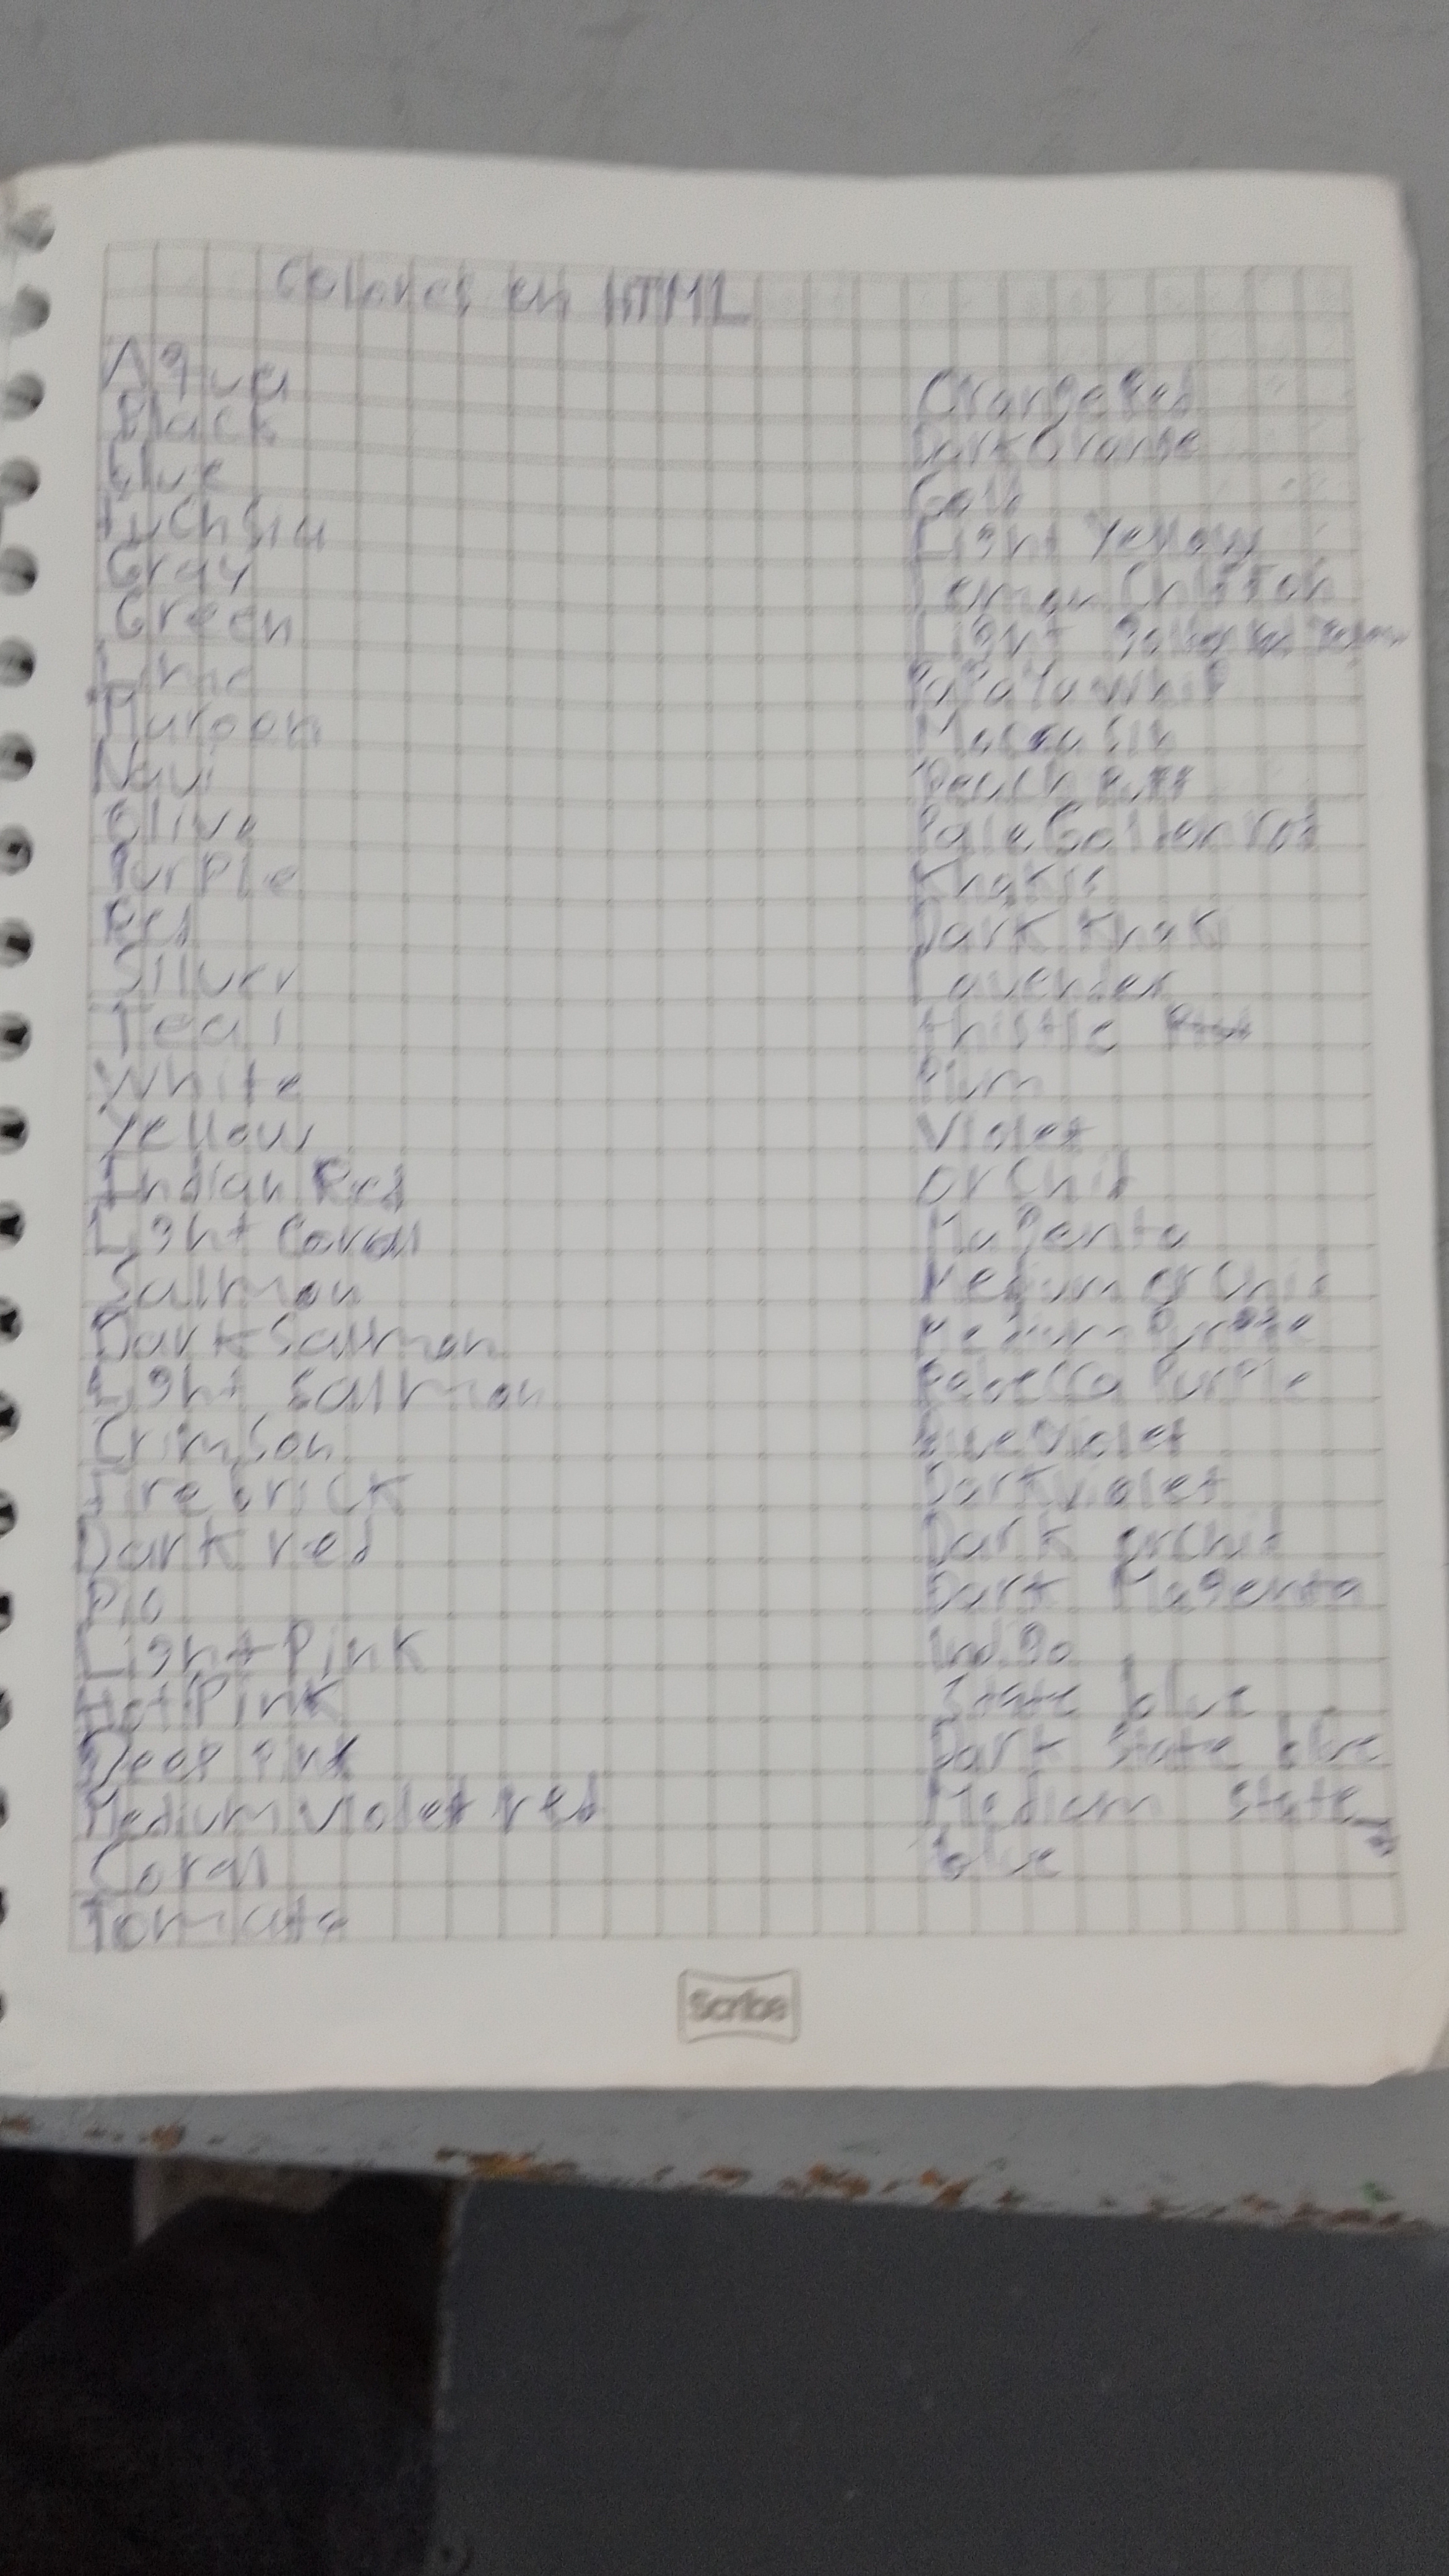 Colores en HTML
Aqua
Black
blue
fuchsia
Gray
Green
Lime
Maroon
Navi
Olive
Purple
Red
Silver
Teal
White
Yellow
Indian Red
Light Coral
Salmon
Dark Salmon
Light Salmon
Crimson
Firebrick
Dark red
Light Pink
Hot Pink
Deep Pink
Medium violet red
Coral
Tomate
Orange Red
Dark Orange
Gold
Light Yellow
Lemon Chiffon
Light
Papaya Whip
Peach Puff
Pale Goldenrod
Dark Khaki
Lavender
thistle
Plum
Violet
orchid
Magenta
Medium orchid
Medium Purple
Rebecca Purple
Blue Violet
Dark violet
Dark orchid
Dark Magenta
State blue
Dark State blue
Medium State
blue
Scribe